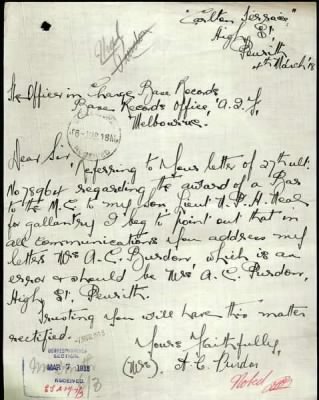 "Carlton Terrace"
High St,
Penrith
4th March '18
The Officer in Charge Base Records
Base Records Office, A.I.F,
Melbourne.
Dear Sir,
Referring to your letter of 27th ult:
No 78964 regarding the award of a Bar
to the M.C. to my son Lieut N. P. H. Neal
for gallantry I beg to point out that in
all communications you address my
letters Mrs A. C. Burdon, which is an
error & should be Mrs A. C. Purdon,
High St, Penrith.
Trusting you will have this matter
rectified.
Yours Faithfully,
(Mrs) A C Purdon
MAR 7 1918
RECEIVED
Noted